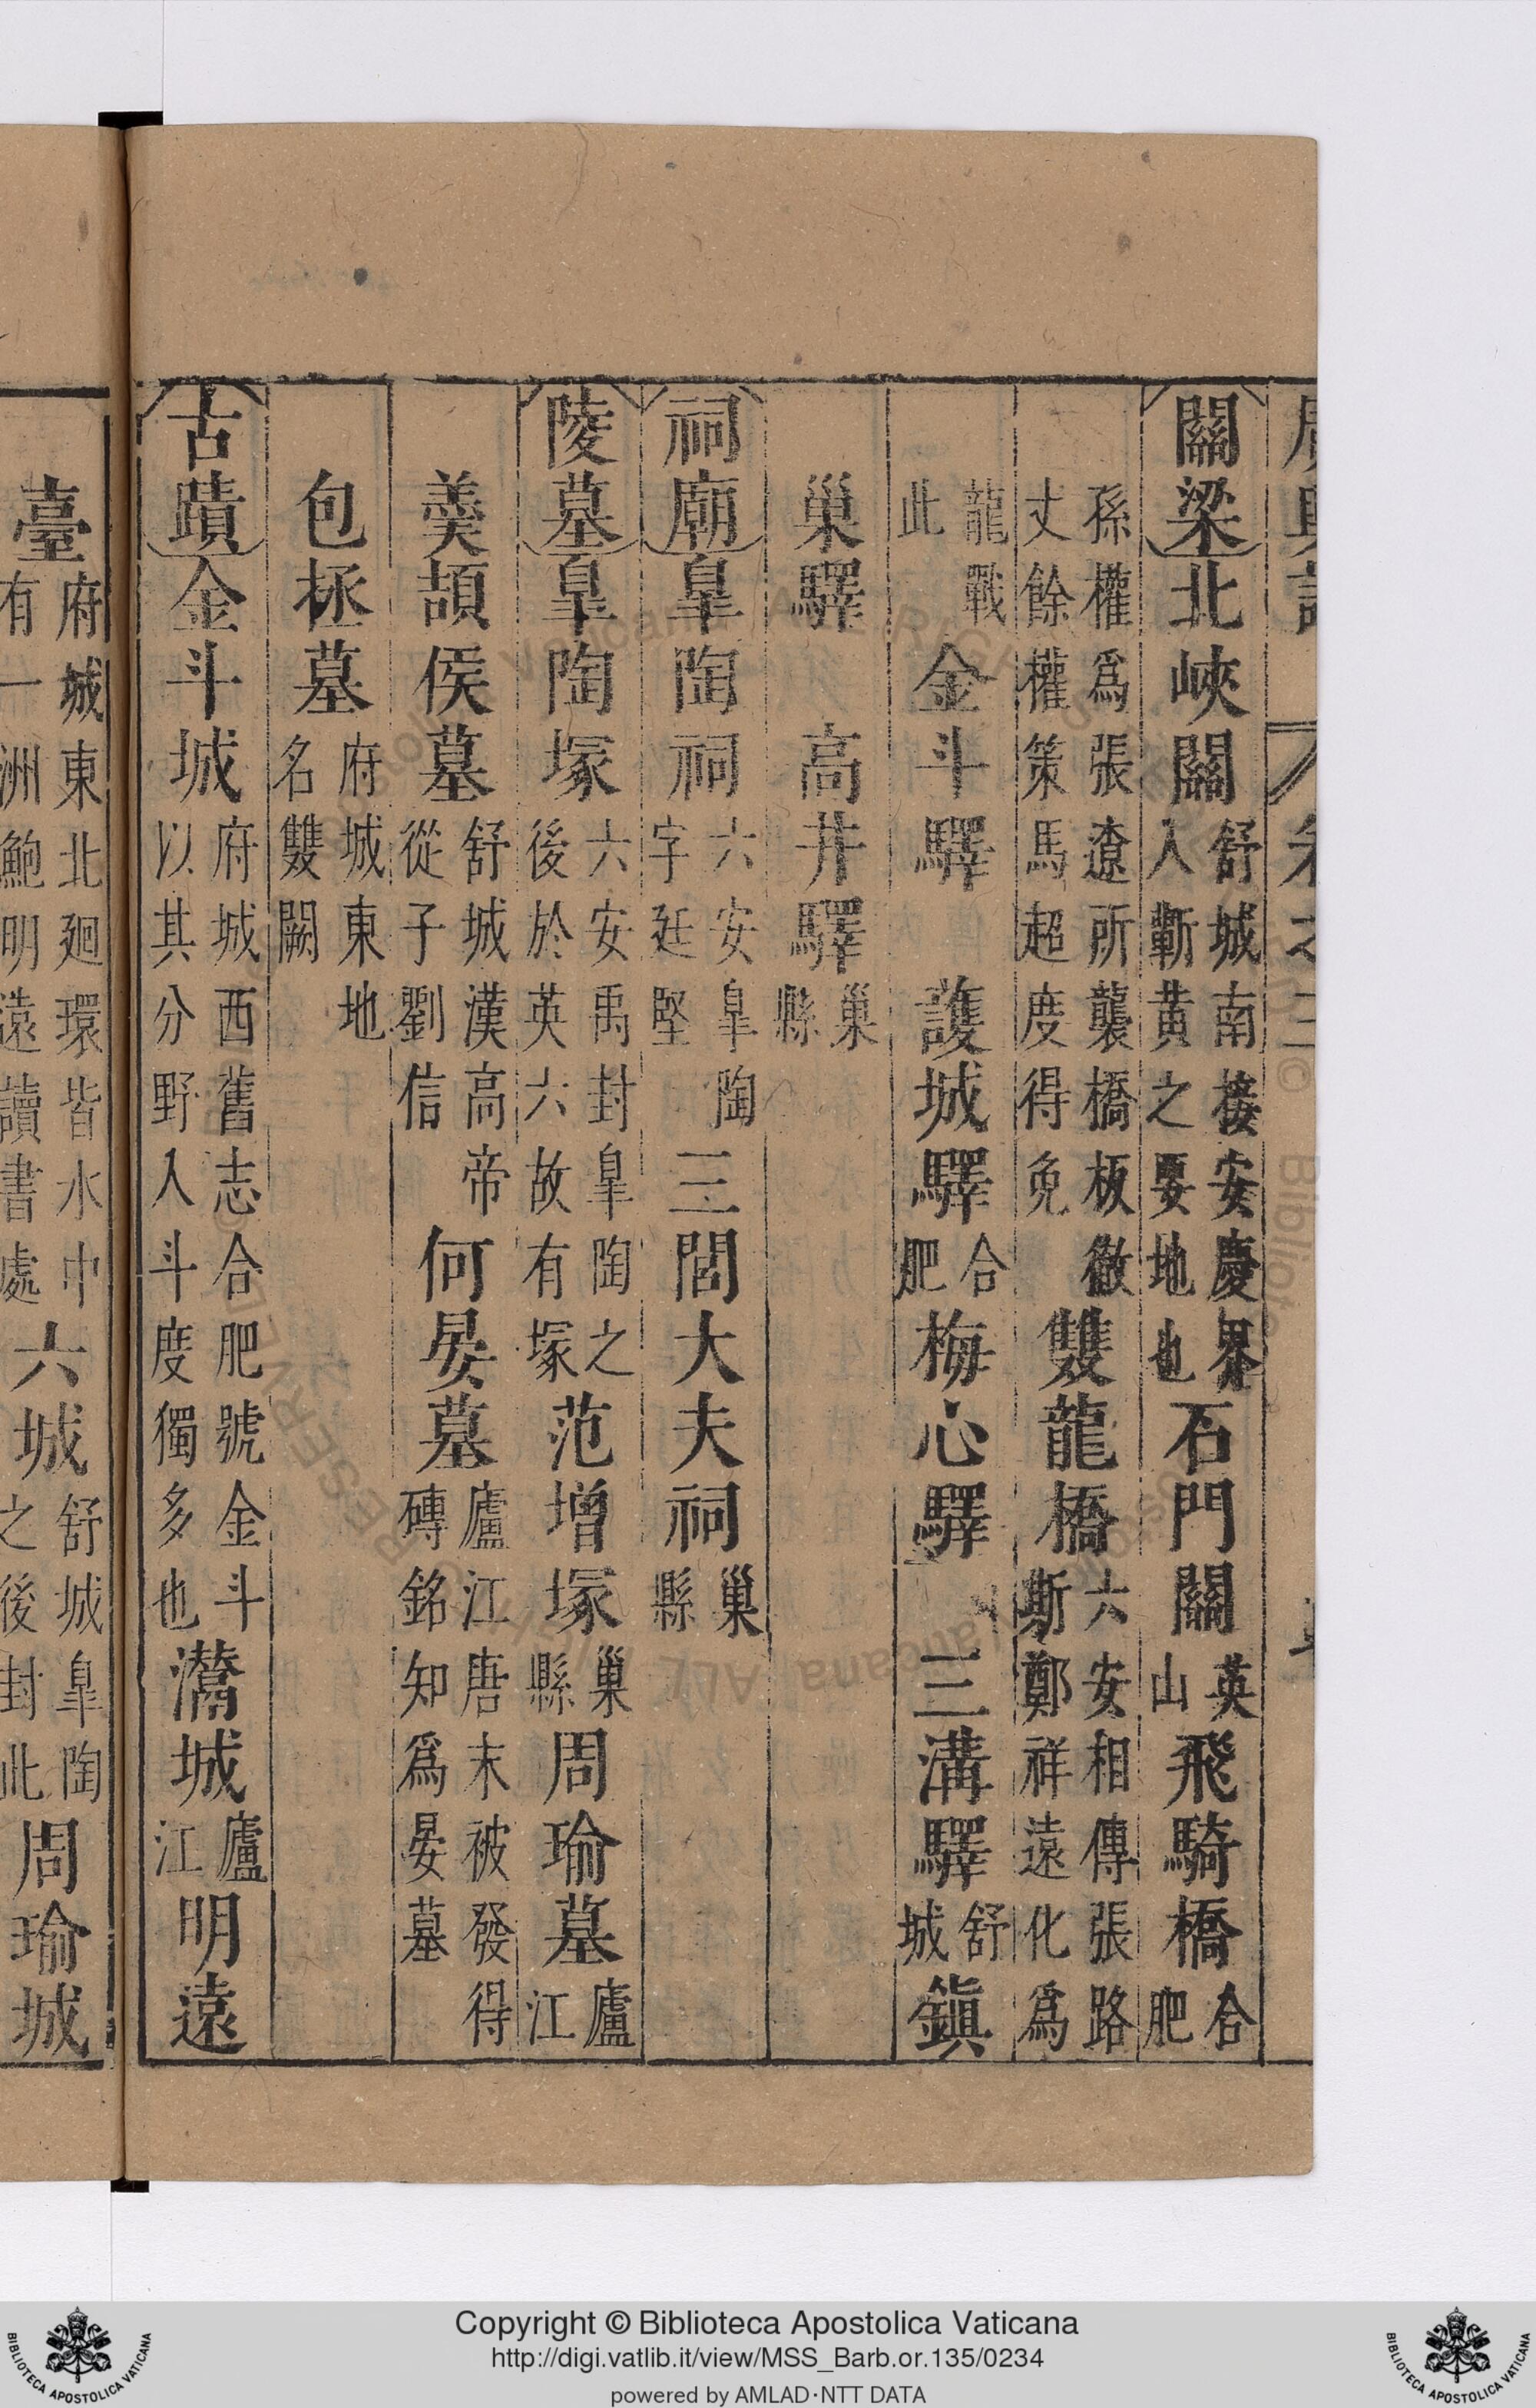 關梁北峽關舒城南接安慶界入蘄黃之要地也石門關英山飛騎橋合肥
孫權爲張遼所襲橋板徹丈餘權策馬超度得免雙龍橋六安相傳張路斯鄭祥遠化爲
龍戰此金斗驛護城驛合肥梅心驛三溝驛舒城鎮
巢驛高井驛巢縣
祠廟皐陶祠六安皐陶字廷堅三閭大夫祠巢縣
陵墓皐陶塚六安禹封皐陶之後於英六故有塚范增塚巢縣周瑜墓廬江
羹頡侯墓舒城漢高帝從子劉信何晏墓廬江唐末被發得磚銘知爲晏墓
包拯墓府城東地名雙闕
古蹟金斗城府城西舊志合肥號金斗以其分野入斗度獨多也灊城廬江明遠
臺府城東北廻環皆水中有一洲鮑明遠讀書處六城舒城皐陶之後封此周瑜城
Copyright © Biblioteca Apostolica Vaticana
http://digi.vatlib.it/view/MSS_Barb.or.135/0234
powered by AMLAD·NTT DATA
BIBLIOTECA APOSTOLICA VATICANA
BIBLIOTECA APOSTOLICA VATICANA